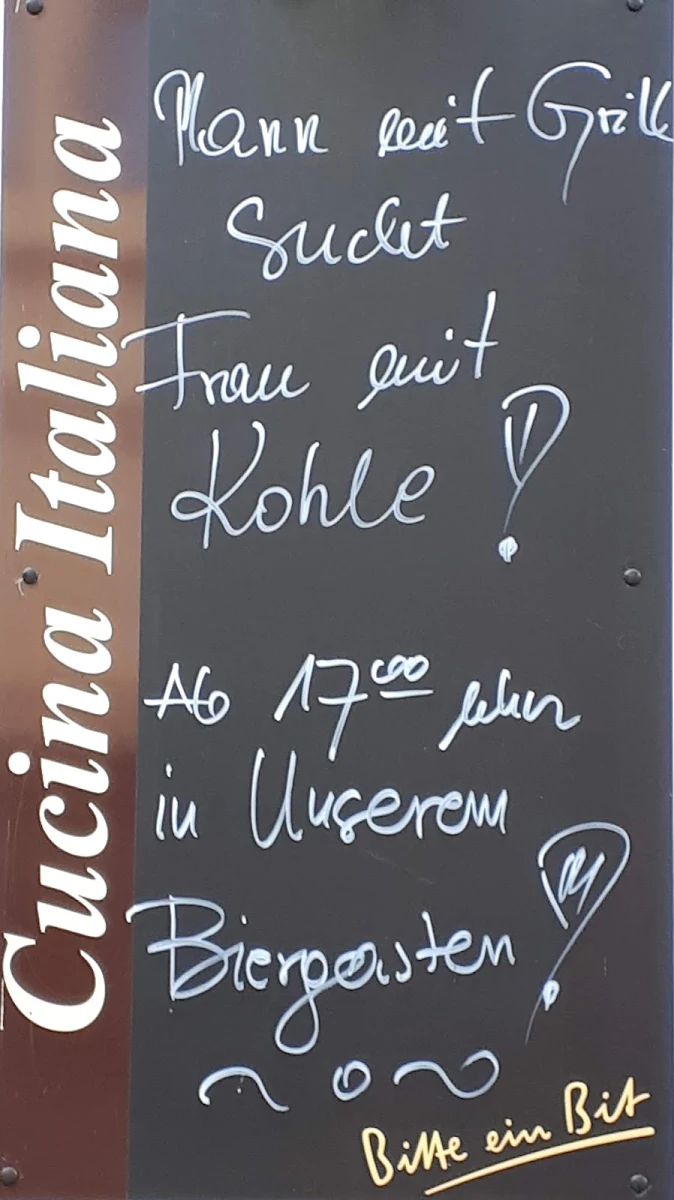 Cucina Italiana
Mann mit Grill
Sucht
Frau mit
Kohle!
Ab 17⁰⁰ Uhr
in Unserem
Biergarten!
Bitte ein Bit